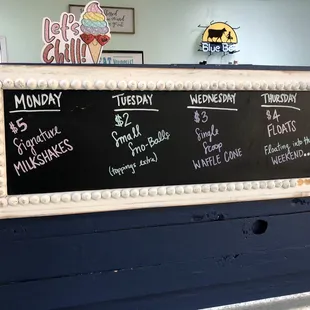 Let's
Chill!
Blue Bell
MONDAY
$5
Signature
MILKSHAKES
TUESDAY
$2
Small
Sno-Balls
(toppings extra)
WEDNESDAY
$3
Single
Scoop
WAFFLE CONE
THURSDAY
$4
FLOATS
Floating into the
WEEKEND...